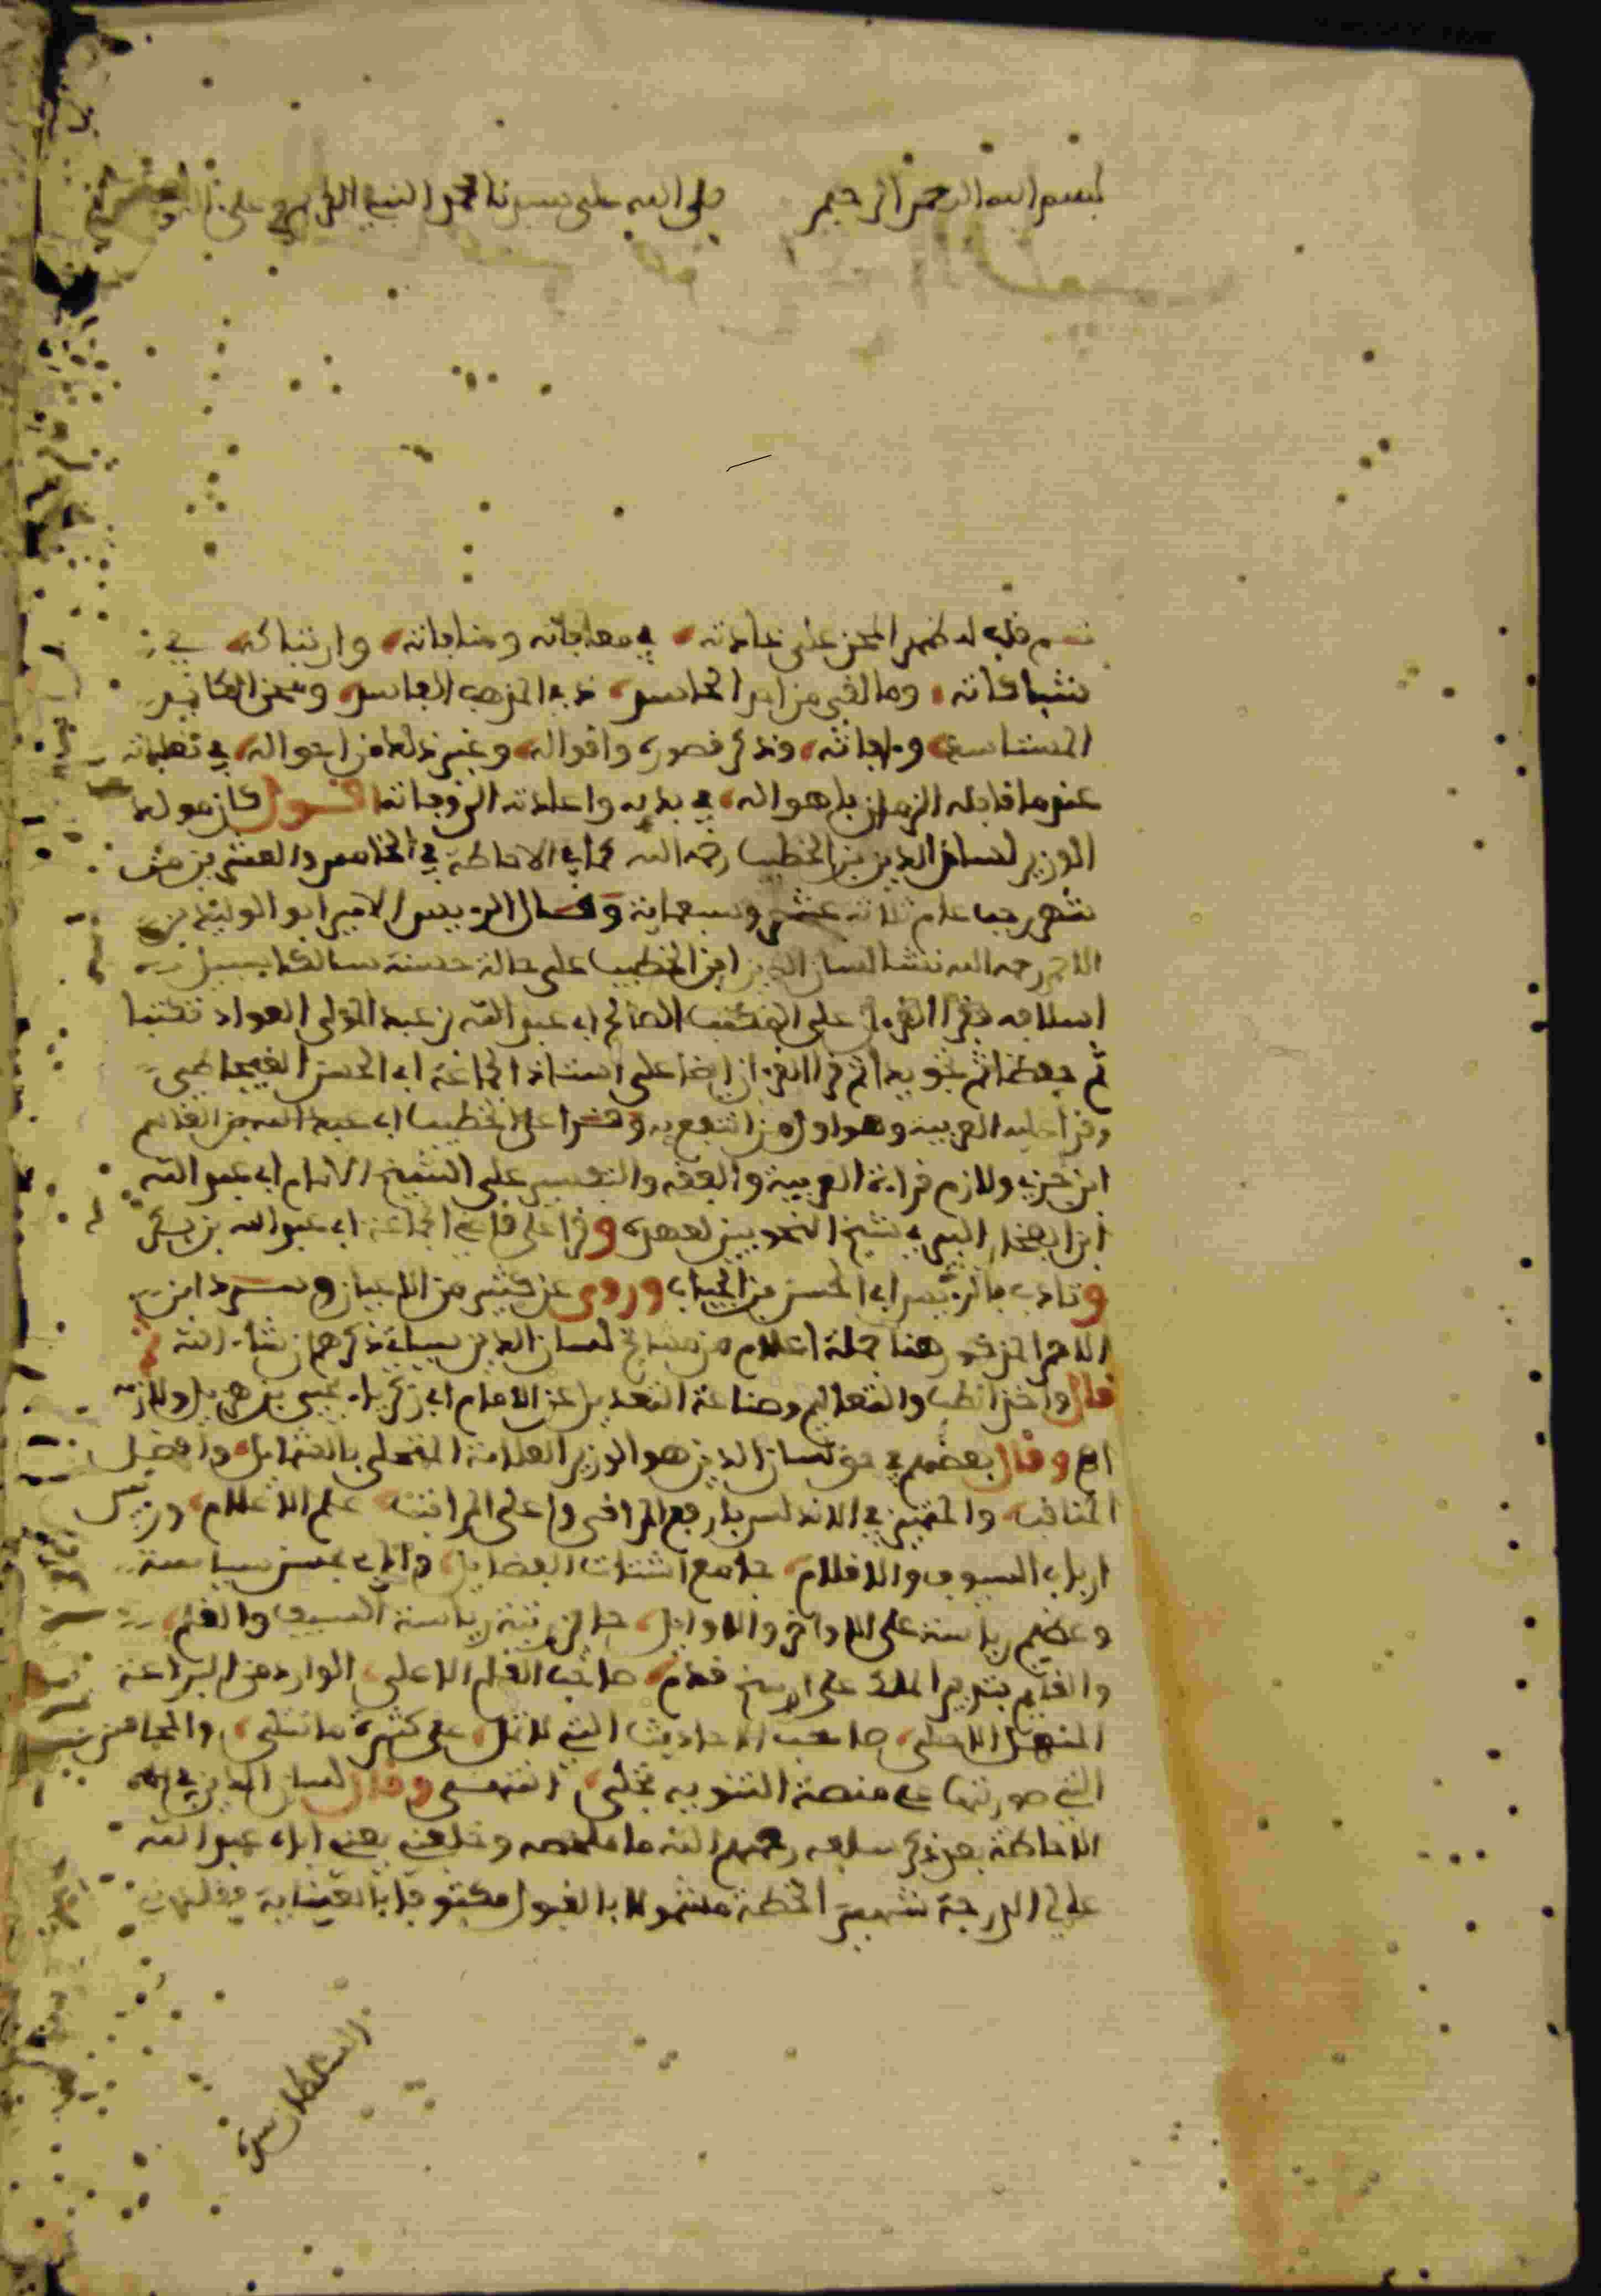 بسم الله الرحمن الرحيم صلى الله على سيدنا محمد النبي الكريم وعلى آله
قلب له ظهر المجن على عادته في مصافاته ومنافاته وارتباكه في
شباكاته وما لقي من احن الحاسد ذي المذهب الفاسد ومحن الكايد
المستاسد وءافاته وذكر قصوره وامواله وغير ذلك من احواله في تقلباته
عندما قابله الزمان باهواله في بدءه واعادته الى وفاته اقول كان مولد
الوزير لسان الدين بن الخطيب رحمه الله كما في الاحاطة في الخامس والعشرين من
شهر رجب عام ثلاثة عشر وسبعماية وقال الرييس الامير ابو الوليد بن
الاحمر رحمه الله نشا لسان الدين ابن الخطيب على حالة حسنة سالكا سبيل
اسلافه فقرا القرءان على المكتب الصالح ابي عبد الله بن عبد المولى العواد تكتبا
ثم حفظا ثم تجويدا ثم قرا القرءان ايضا على استاذ الجماعة ابي الحسن القيجاطي
وقرا عليه العربية وهو اول من انتفع به وقرا على الخطيب ابي عبد الله بن القاسم
ابن جزي ولازم قراءة العربية والفقه والتفسير على الشيخ الامام ابي عبد الله
ابن الفخار البيري شيخ النحويين لعهده وقرا على قاضي الجماعة ابي عبد الله بن بكر
وتادب بالرييس ابي الحسن بن الجياب وروى عن كثير من الاعيان وسرد ابن
الاحمر المذكور هنا جملة اعلام من مشايخ لسان الدين سياتي ذكرهم ان شاء الله ثم
قال واخذ الطب والتعاليم وصناعة التعديل عن الامام ابي زكرياء يحيى بن هذيل ولازمه
اه وقال بعضهم في حق لسان الدين هو الوزير العلامة المتحلي باجمل الشمايل وافضل
المناقب والمتميز في الاندلس بارفع المراقي واعلى المراتب علم الاعلام ورييس
ارباب السيوف والاقلام جامع اشتات الفضايل والمربي بحسن سياسة
وعظيم رياسته على الاواخر والاوايل حايز رتبة رياسة السيف والقلم
والقايم بتدبير الملك على ارسخ قدم صاحب القلم الاعلى الوارد من البراعة
المنهل الاحلى صاحب الاحاديث التي لا تمل على كثرة ما تتلى والمحاسن
التي صورتها على منصة التنويه تجلى انتهى وقال لسان الدين في
الاحاطة بعد ذكر سلفه رحمهم الله ما ملخصه وخلفني يعني اباه عبد الله
عالي الدرجة شهير الخطة مشمولا بالقبول مكنوفا بالعناية فقلدني
السلطان سره